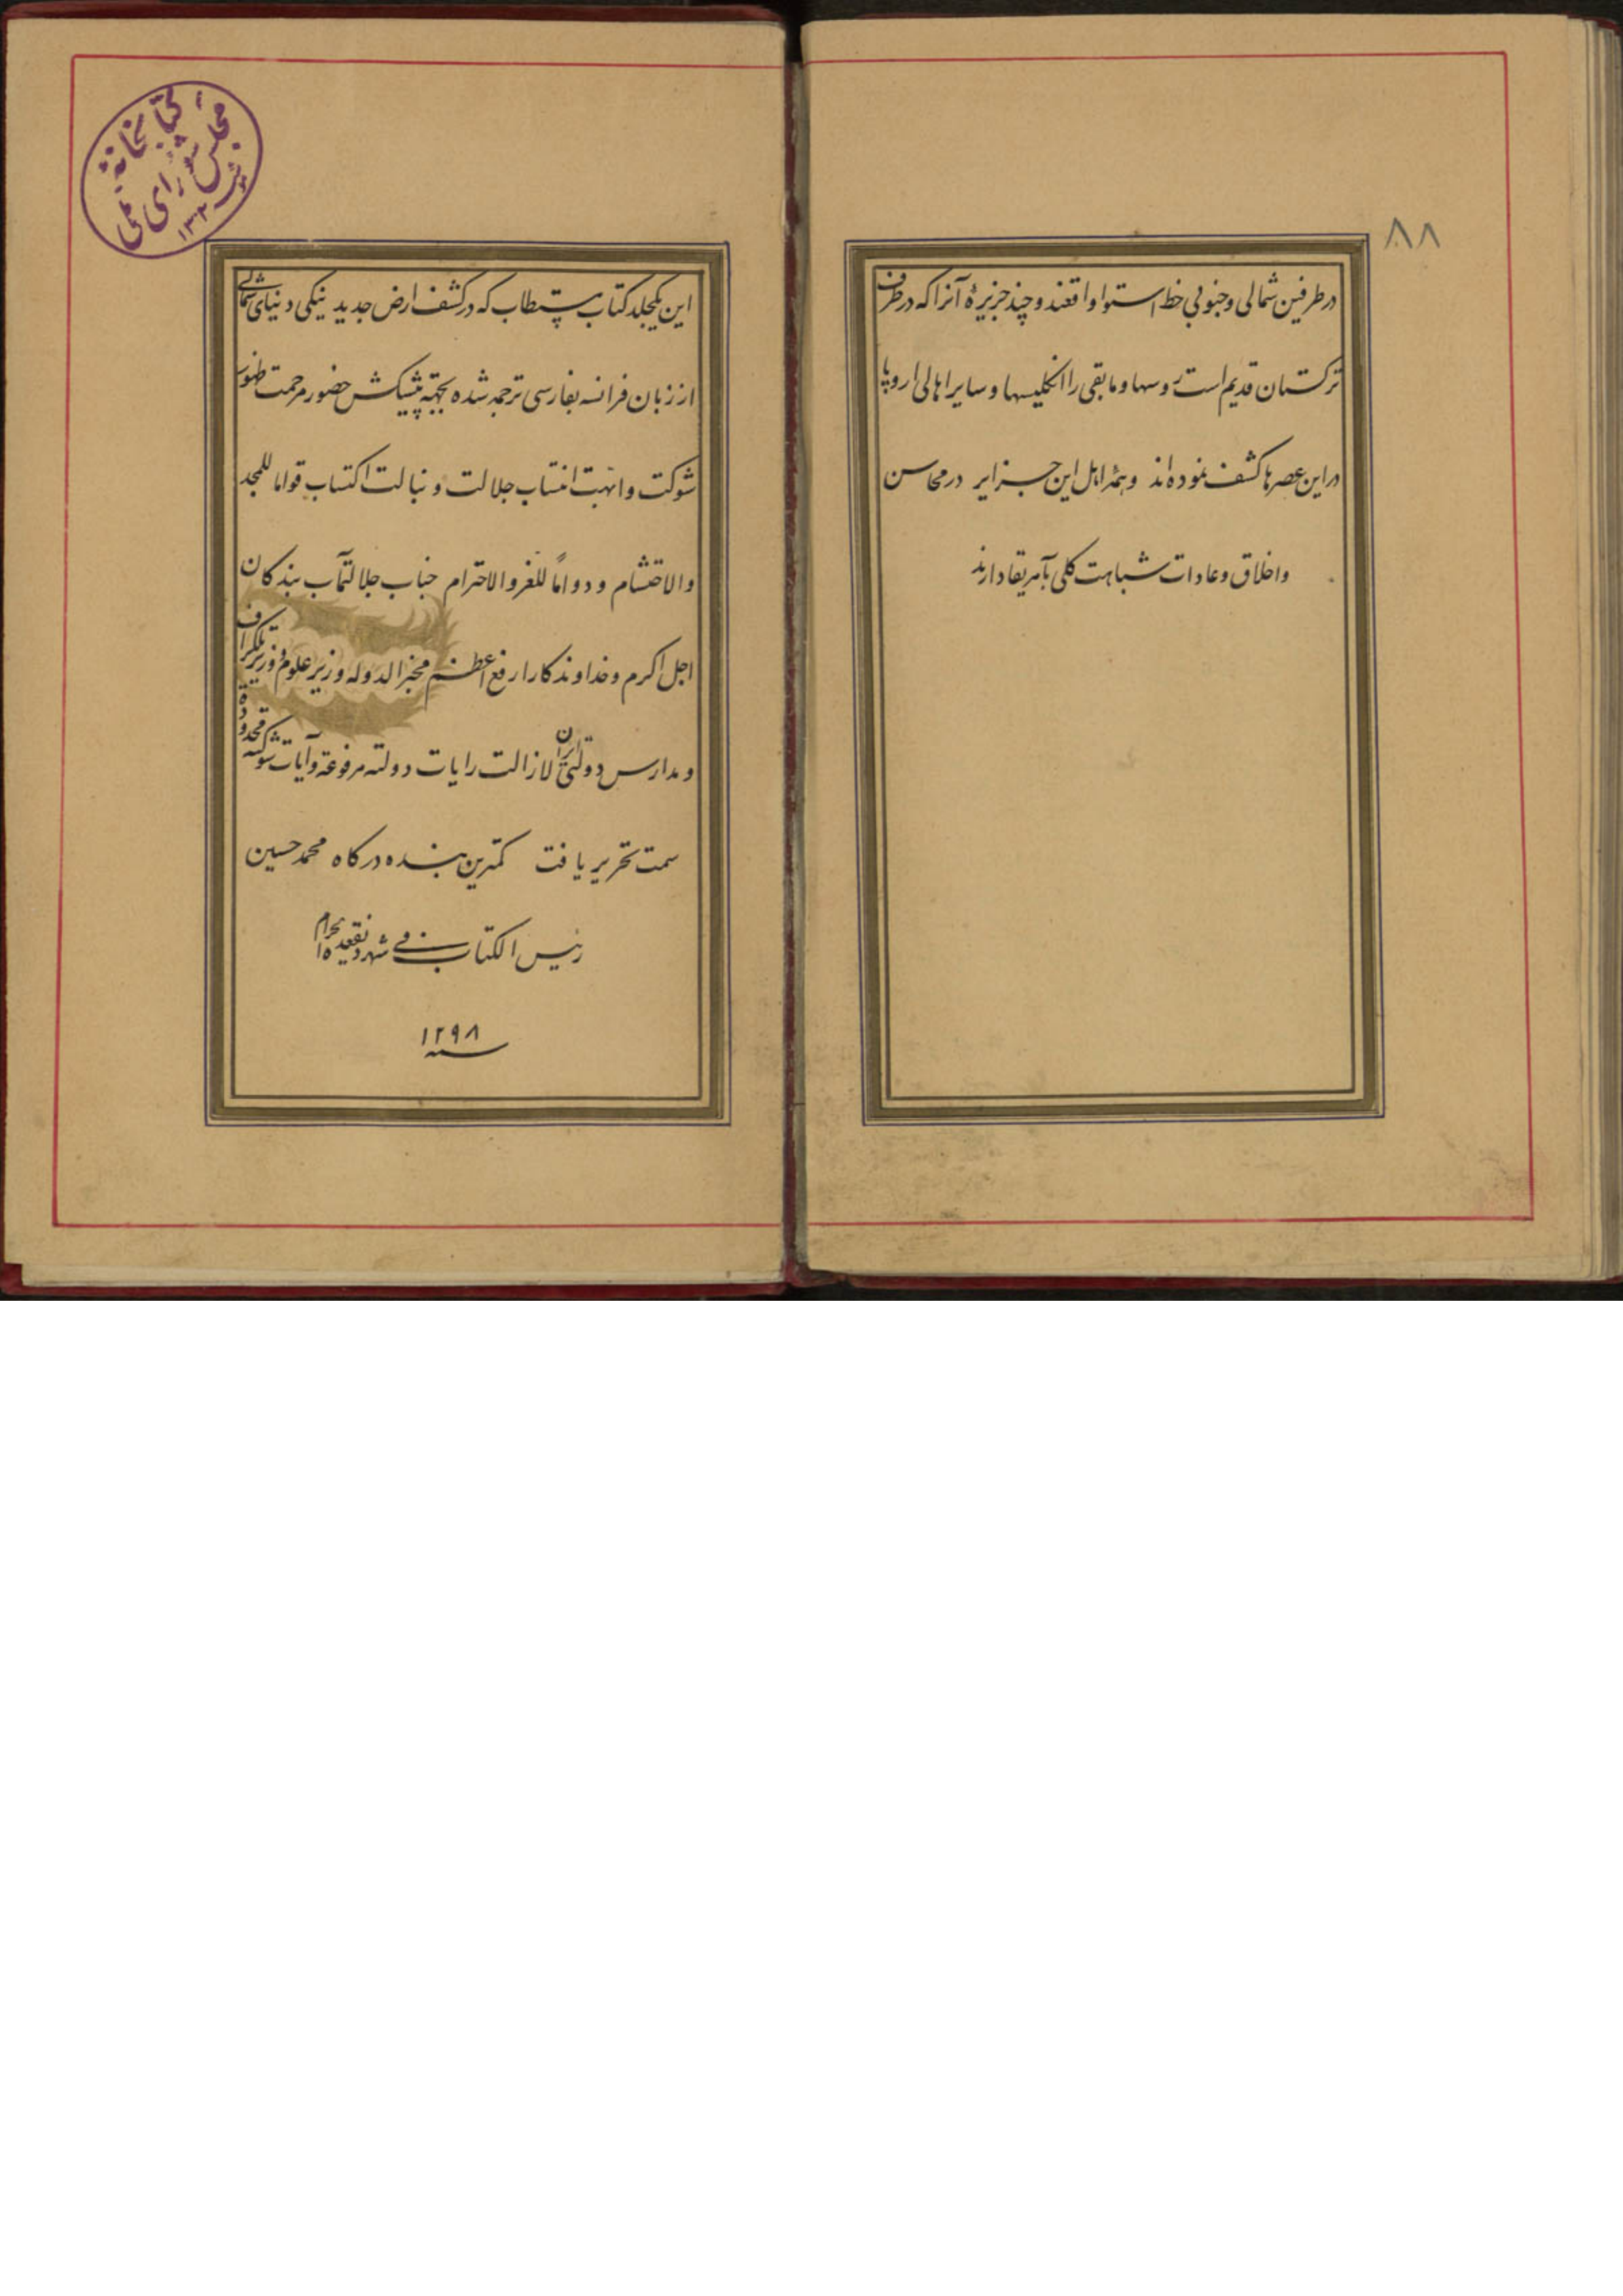 ۸۸
در طرفین شمالی و جنوبی خط استوا واقعند و چند جزیرهٔ آنرا که در طرف
ترکستان قدیم است روسها و مابقی را انگلیسها و سایر اهالی اروپا
در این عصرها کشف نموده‌اند و همه اهل این جزایر در محاسن
و اخلاق و عادات شباهت کلی بآمریقا دارند
کتابخانهٔ
مجلس شورای ملی
۱۳۰۲
این یکجلد کتاب مستطاب که در کشف ارض جدید ینکی دنیای شمالی
از زبان فرانسه بفارسی ترجمه شده بجهة پیشکش حضور مرحمت ظهور
شوکت و ابهت انتساب جلالت و نبالت اکتساب قواما للمجد
والاحتشام و دواماً للعز والاحترام جناب جلالتمآب بندکان
اجل اکرم و خداوندکار ارفع اعظم مخبرالدوله وزیر علوم و وزیر تلگراف
و مدارس دولتی ایران لازالت رایات دولته مرفوعة و آیات شوکته
سمت تحریر یافت کمترین بنده درکاه محمد حسین
رئیس الکتاب فی شهر
سنه ۱۲۹۸